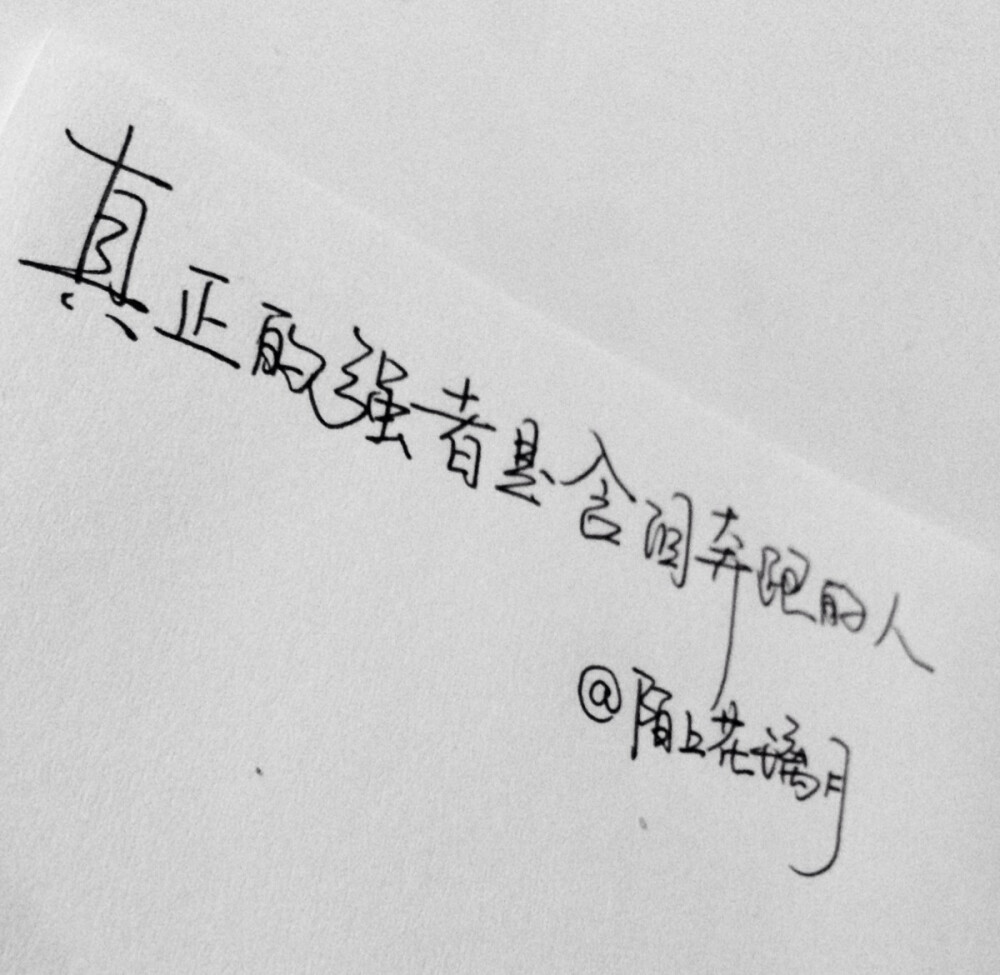 真正的强者是含泪奔跑的人
@陌上花漓月